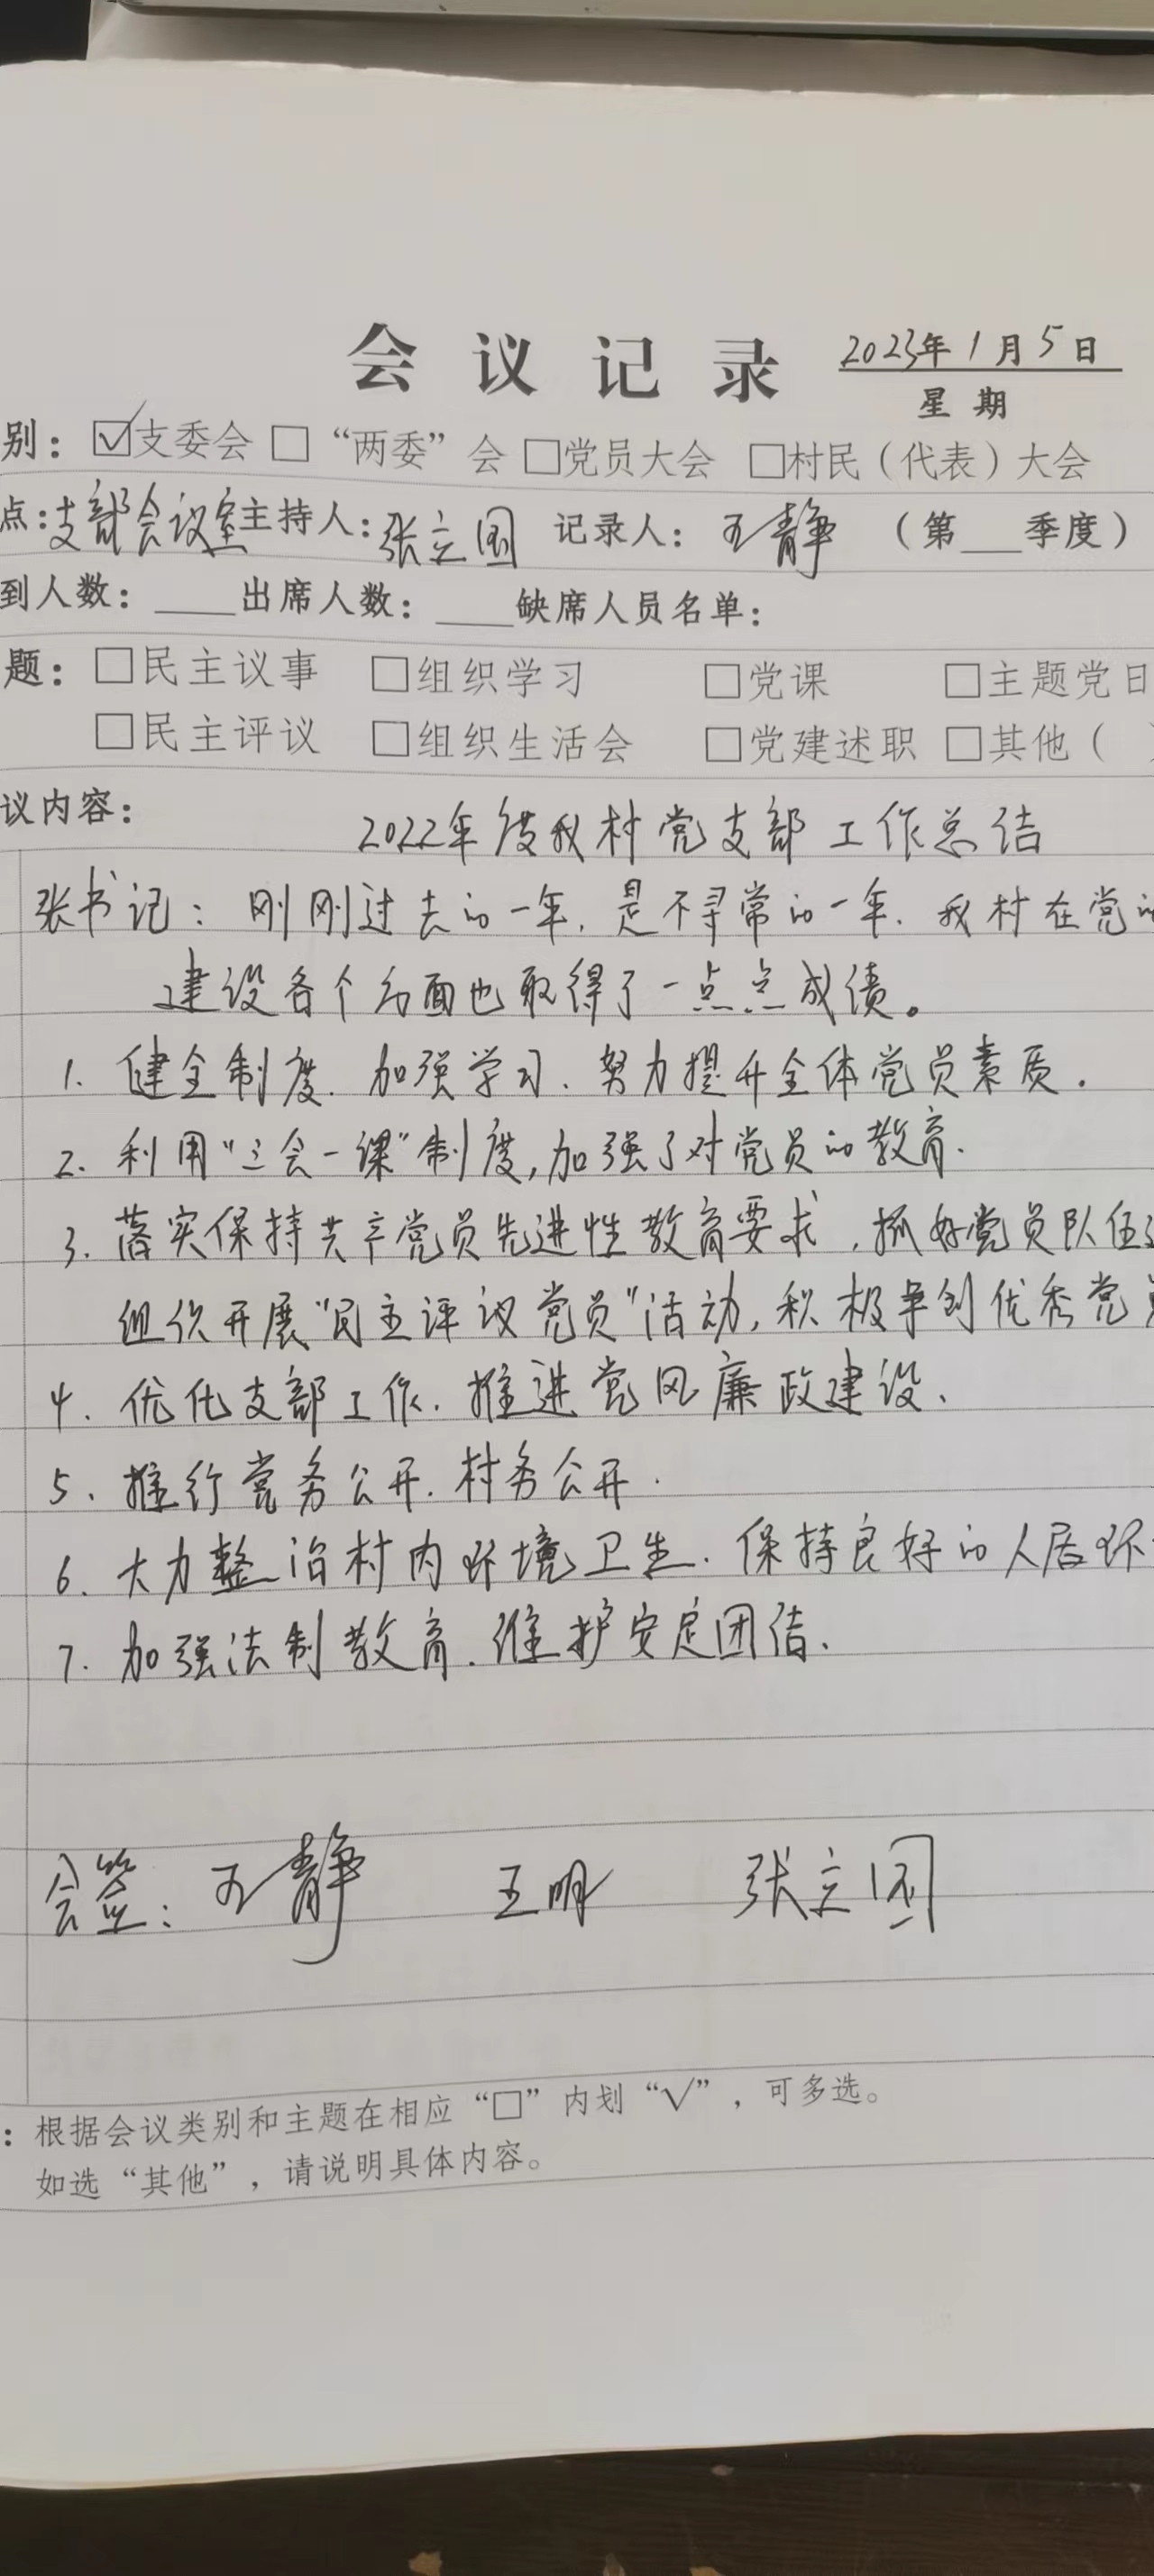 会议记录 2023年1月5日
星期
别：☑支委会 □“两委”会 □党员大会 □村民（代表）大会
点：支部会议室主持人：张立国 记录人：王静 （第___季度）
到人数：____出席人数：____缺席人员名单：
题：□民主议事 □组织学习 □党课 □主题党日
□民主评议 □组织生活会 □党建述职 □其他（
议内容： 2022年度我村党支部工作总结
张书记：刚刚过去的一年，是不寻常的一年．我村在党的
建设各个方面也取得了一点点成绩。
1. 健全制度．加强学习、努力提升全体党员素质．
2. 利用“三会一课”制度，加强了对党员的教育．
3. 落实保持共产党员先进性教育要求，抓好党员队伍
组织开展“民主评议党员”活动，积极争创优秀党员
4. 优化支部工作．推进党风廉政建设、
5、推行党务公开．村务公开．
6. 大力整治村内环境卫生．保持良好的人居环
7. 加强法制教育．维护安定团结、
会签：王静 王明 张立国
：根据会议类别和主题在相应“□”内划“√”，可多选。
如选“其他”，请说明具体内容。